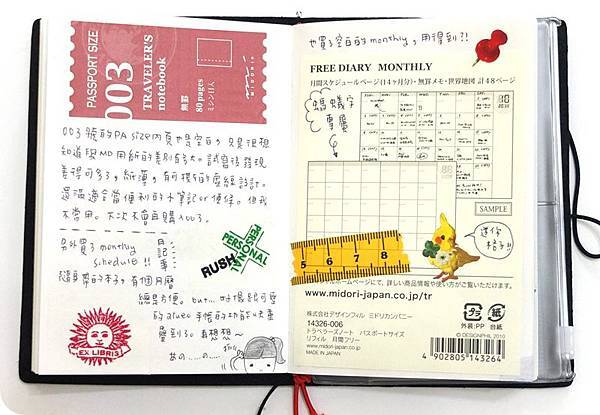 PASSPORT SIZE
003
TRAVELER'S
notebook
無罫
80 pages
ミシン目入
MIDORI
003號的PA size內頁也是空白,只是很想
知道跟MD用紙的差別有多大。試寫後發現
差得可多了,紙薄,有撕
設計。
還滿適合當便利的小筆記or便條。但我
不常用。下次不會再購入003。
另外買了monthly
月記事
schedule!!
隨身帶的本子,有個月曆
總是方便。but...
的
手帳的功能
量到30。再想想~
あの......の......
RUSH
PERSONAL
PERSONAL
EX LIBRIS
也買了空白的monthly,用得到??
FREE DIARY MONTHLY
月間スケジュールページ(14ヶ月分)・無罫メモ・世界地図 計48ページ
螞蟻字
專屬
SAMPLE
迷你
格子!!
5 6 7 8
ホームページにて、詳しい商品情報や使い方がご覧いただけます。
www.midori-japan.co.jp/tr
株式会社デザインフィル ミドリカンパニー
14326-006
トラベラーズノート パスポートサイズ
リフィル 月間フリー
www.midori-japan.co.jp
MADE IN JAPAN
プラ 紙
外袋:PP 台紙
© DESIGNPHIL 2010
4 902805 143264